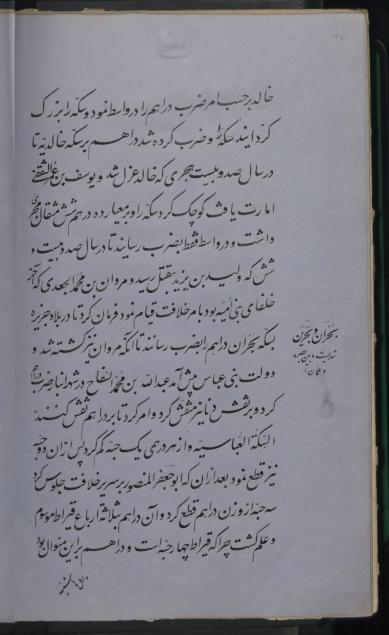 ۲۷
خالد برحسب امر ضرب دراهم را در واسط نمود و سکه را بزرک
کردانید سکه را و ضرب کرده شد دراهم بر سکه خالدیه تا
در سال صد و بیست هجری که خالد عزل شد و یوسف بن عمر الثقفی
امارت یافت کوچک کرد سکه را و بر معیار ده درهم شش مثقال مجری
داشت و در واسط فقط بضرب رسانید تا در سال صد و بیست و
شش که ولید بن یزید بقتل رسید و مروان بن محمد الجعدی که آخر
خلفای بنی امیه بود بامر خلافت قیام نمود فرمان کرد تا در بلاد جزیره
بسکه بحران دراهم را بضرب رسانند تا آنکه مروان نیز کشته شد و
دولت بنی عباس پیش آمد عبدالله بن محمد السفاح در شهر انبار ضرب دراهم
کرد و بر نقش دنانیر منقش کرد و امر کرد تا بر دراهم نقش کنند
السکة العباسیه و از هر درهمی یک حبه کم کرد پس از آن دو حبه
نیز قطع نمود بعد از آن که ابو جعفر المنصور بر سریر خلافت جلوس کرد
سه حبه از وزن دراهم قطع کرد و آن دراهم بثلاثة ارباع قیراط موسوم
و علم کشت چرا که قیراط چهار حبه است و دراهم بر این منوال بود
بحران و بحرین